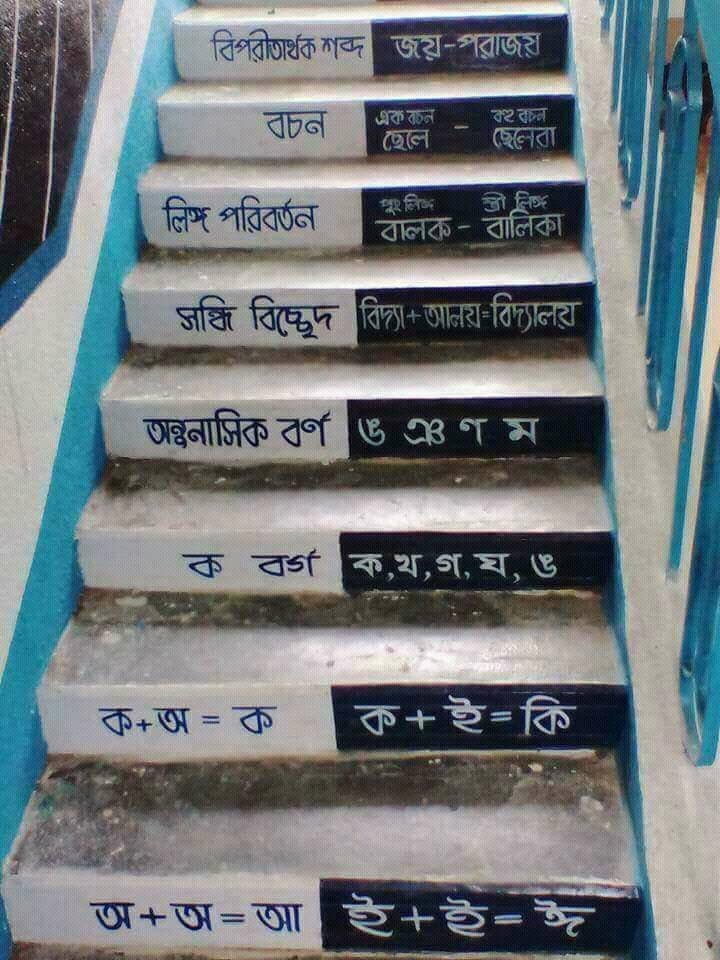 বিপরীতার্থক শব্দ জয় - পরাজয়
বচন এক বচন ছেলে - বহু বচন ছেলেরা
লিঙ্গ পরিবর্তন পুং লিঙ্গ বালক - স্ত্রী লিঙ্গ বালিকা
সন্ধি বিচ্ছেদ বিদ্যা + আলয় = বিদ্যালয়
অনুনাসিক বর্ণ ঙ ঞ ণ ম
ক বর্গ ক, খ, গ, ঘ, ঙ
ক + অ = ক ক + ই = কি
অ + অ = আ ই + ই = ঈ